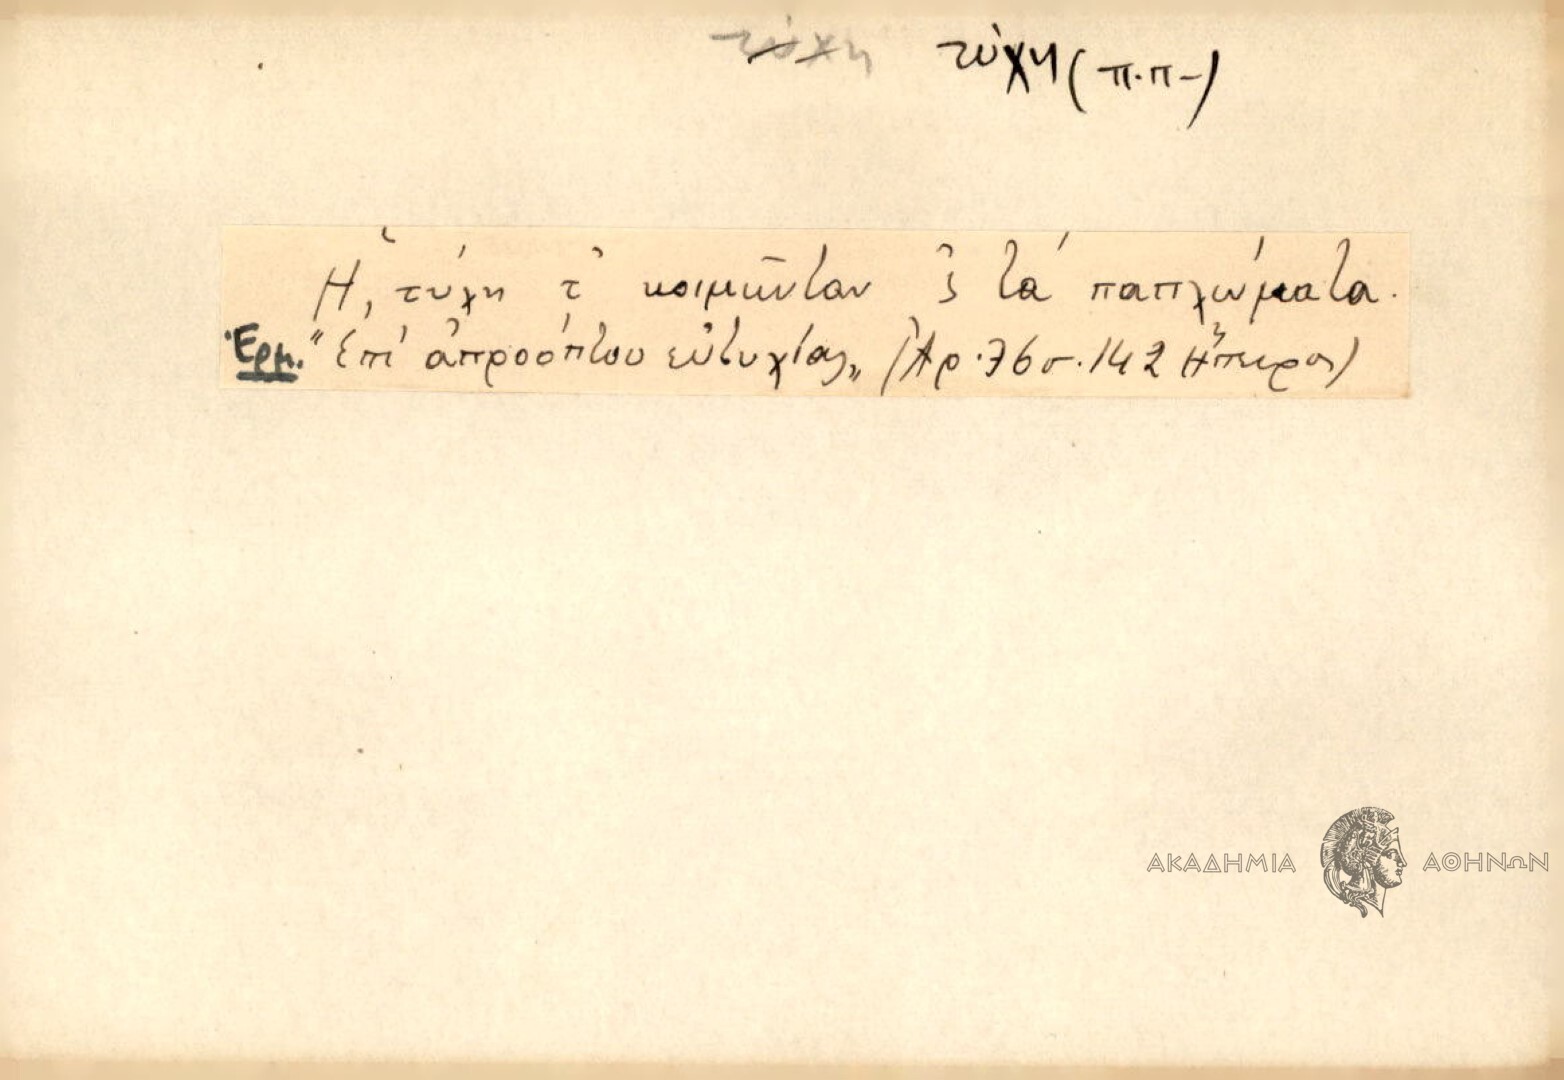 τύχη τύχη (π.π-)
Ἡ τύχη τ' κοιμῶνταν 'ς τὰ παπλώματα.
Ἑρμ. "Ἐπὶ ἀπροόπτου εὐτυχίας„ (Ἀρ. 76 σ. 142 Ἤπειρος)
ΑΚΑΔΗΜΙΑ ΑΘΗΝΩΝ